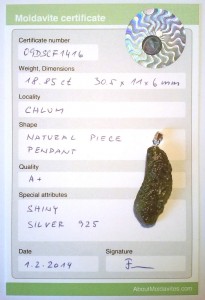 Moldavite certificate
Certificate number
09DSCF1416
Weight, Dimensions
18.85 ct 30.5 x 11 x 6 mm
Locality
CHLUM
Shape
NATURAL PIECE
PENDANT
Quality
A+
Special attributes
SHINY
SILVER 925
Date
Signature
1.2.2014
AboutMoldavites.com